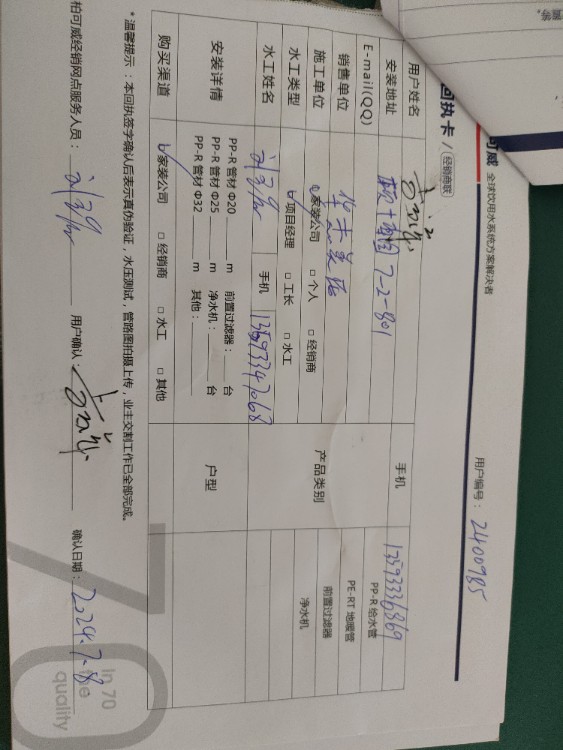 可威 全球饮用水系统方案解决者
回执卡 / 经销商联
用户编号： 2400985
用户姓名
手机 13593336869
安装地址 7-2-801
E-mail(QQ)
产品类别
PP-R 给水管
PE-RT 地暖管
前置过滤器
净水机
销售单位
施工单位 家装公司 □ 个人 □ 经销商
水工类型 项目经理 □ 工长 □ 水工
水工姓名
手机 13593347068
安装详情
PP-R 管材 Φ20 m 前置过滤器： 台
PP-R 管材 Φ25 m 净水机： 台
PP-R 管材 Φ32 m 其他：
户型
购买渠道 家装公司 □ 经销商 □ 水工 □ 其他
* 温馨提示 ：本回执签字确认后表示真伪验证，水压测试，管路图拍摄上传，业主交割工作已全部完成。
柏可威经销网点服务人员：
用户确认：
确认日期： 2024.7.8
in 70
the
quality